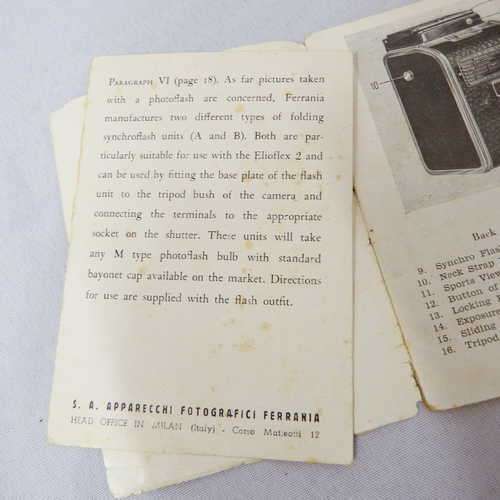 PARAGRAPH VI (page 18). As far pictures taken
with a photoflash are concerned, Ferrania
manufactures two different types of folding
synchroflash units (A and B). Both are par-
ticularly suitable for use with the Elioflex 2 and
can be used by fitting the base plate of the flash
unit to the tripod bush of the camera and
connecting the terminals to the appropriate
socket on the shutter. These units will take
any M type photoflash bulb with standard
bayonet cap available on the market. Directions
for use are supplied with the flash outfit.
S. A. APPARECCHI FOTOGRAFICI FERRANIA
HEAD OFFICE IN MILAN (Italy) - Corso Matteotti 12
10
Back
9. Synchro Flas
10. Neck Strap
11. Sports Vie
12. Button of
13. Locking
14. Exposure
15. Sliding
16. Tripod